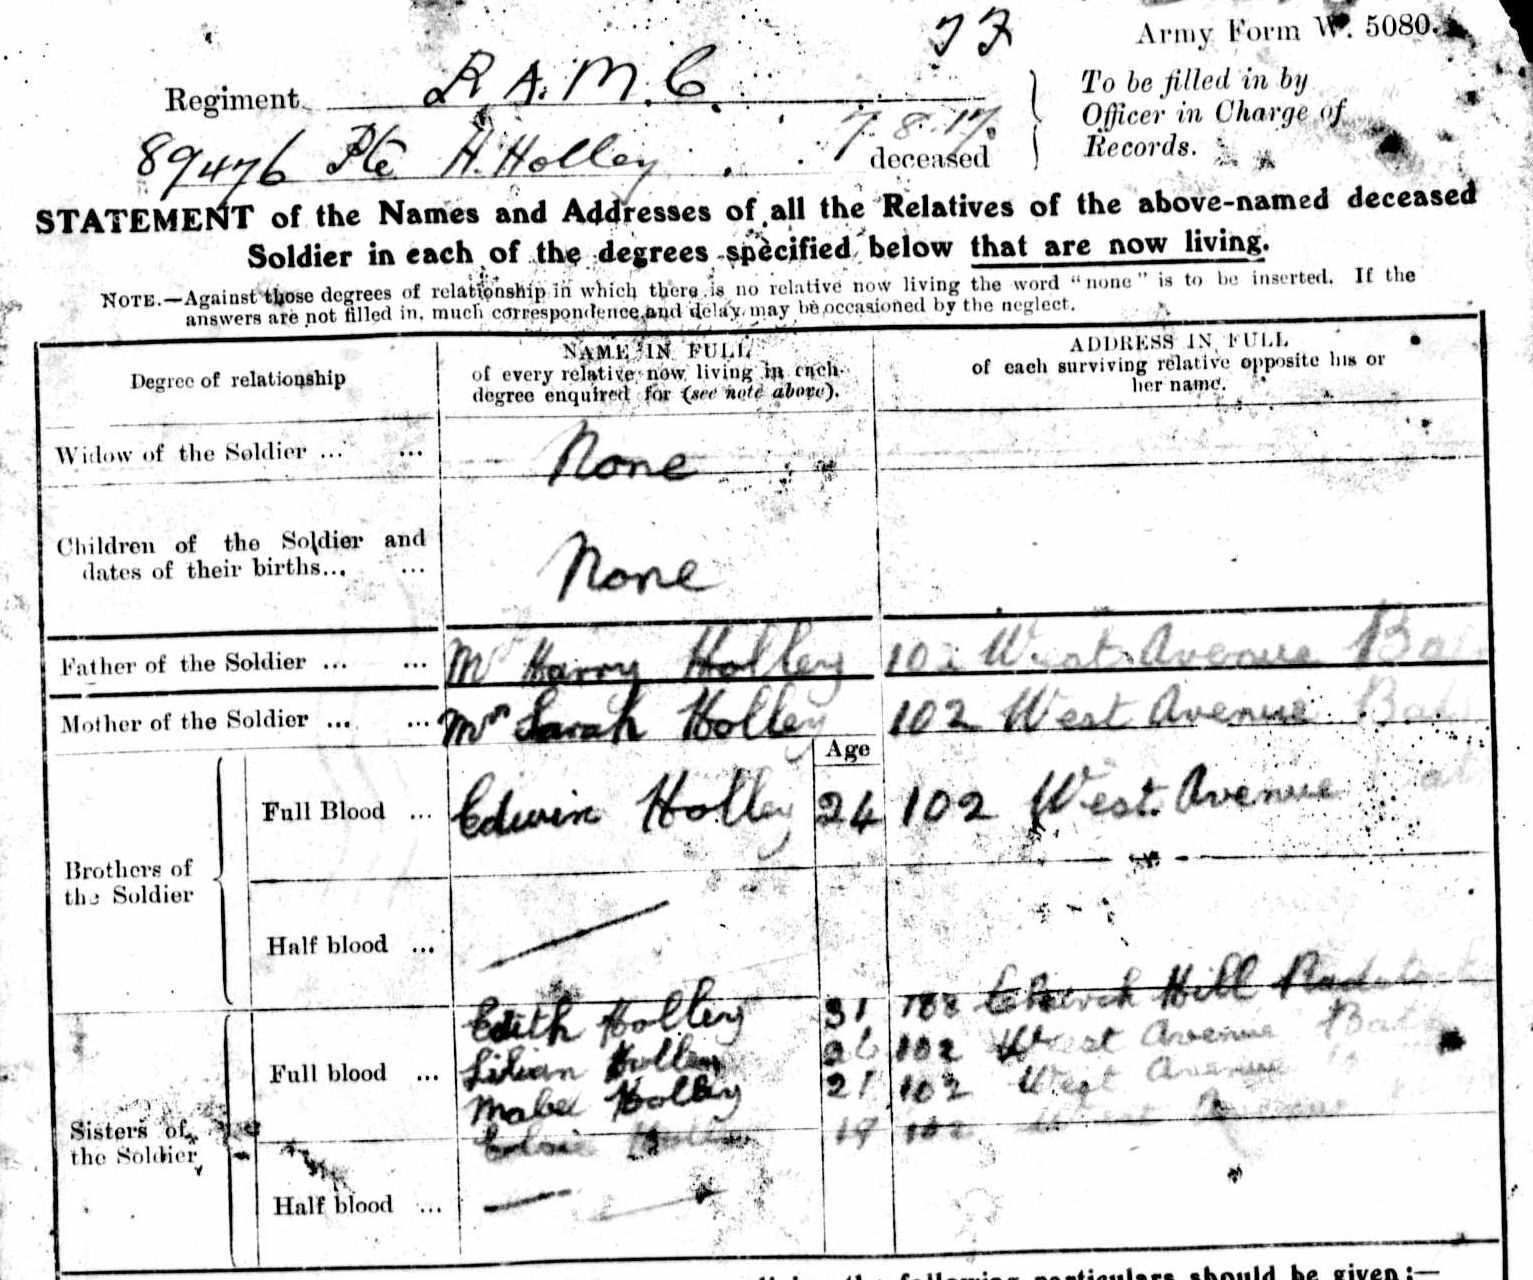 77 Army Form W. 5080.
Regiment R.A.M.C. To be filled in by
Officer in Charge of
Records.
89476 Pte H. Holley 7.8.17. deceased
STATEMENT of the Names and Addresses of all the Relatives of the above-named deceased
Soldier in each of the degrees specified below that are now living.
NOTE.—Against those degrees of relationship in which there is no relative now living the word "none" is to be inserted. If the
answers are not filled in, much correspondence and delay may be occasioned by the neglect.
Degree of relationship
NAME IN FULL
of every relative now living in each
degree enquired for (see note above).
ADDRESS IN FULL
of each surviving relative opposite his or
her name.
Widow of the Soldier ... ... None
Children of the Soldier and
dates of their births... ... None
Father of the Soldier ... ... Mr Harry Holley 102 West Avenue
Mother of the Soldier ... ... Mrs Sarah Holley 102 West Avenue
Age
Brothers of
the Soldier
Full Blood ... Edwin Holley 24 102 West Avenue
Half blood ...
Sisters of
the Soldier
Full blood ...
Edith Holley 31 188 Church Hill
Lilian Holley 26 102 West Avenue
Mabel Holley 21 102 West Avenue
Elsie Holley 102 West Avenue
Half blood ...
following particulars should be given:—